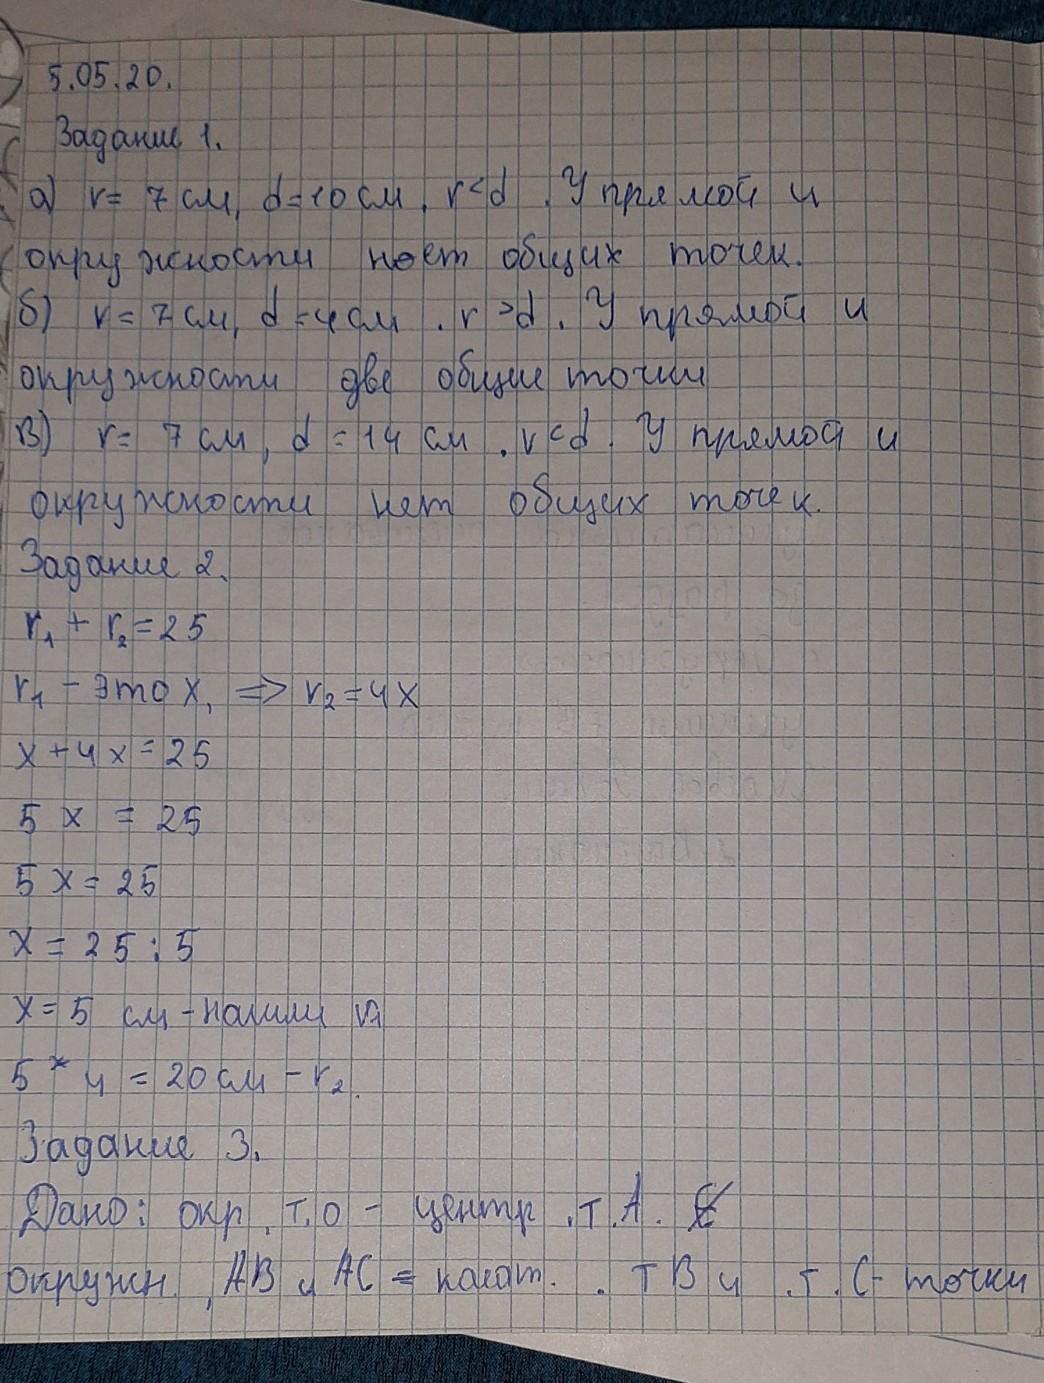 5.05.20.
Задание 1.
а) r = 7 см, d = 10 см. r < d. У прямой и
окружности нет общих точек.
б) r = 7 см, d = 4 см. r > d. У прямой и
окружности две общие точки
в) r = 7 см, d = 14 см. r < d. У прямой и
окружности нет общих точек.
Задание 2.
r₁ + r₂ = 25
r₁ - это x, => r₂ = 4x
x + 4x = 25
5x = 25
5x = 25
x = 25 : 5
x = 5 см - нашли r₁
5 * 4 = 20 см - r₂.
Задание 3.
Дано: окр, т.О - центр. т.А.
окружн., АВ и АС = касат. . т В и .т. С - точки